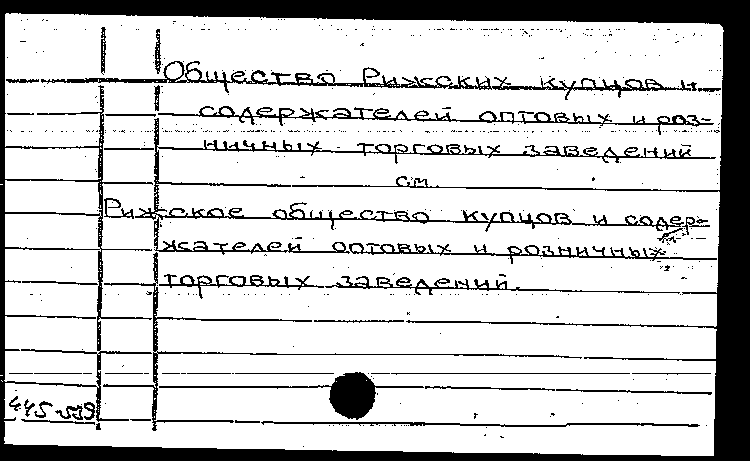 Общество Рижских купцов и
содержателей оптовых и роз-
ничных торговых заведений
см.
Рижское общество купцов и содер-
жателей оптовых и розничных
торговых заведений.
445-539